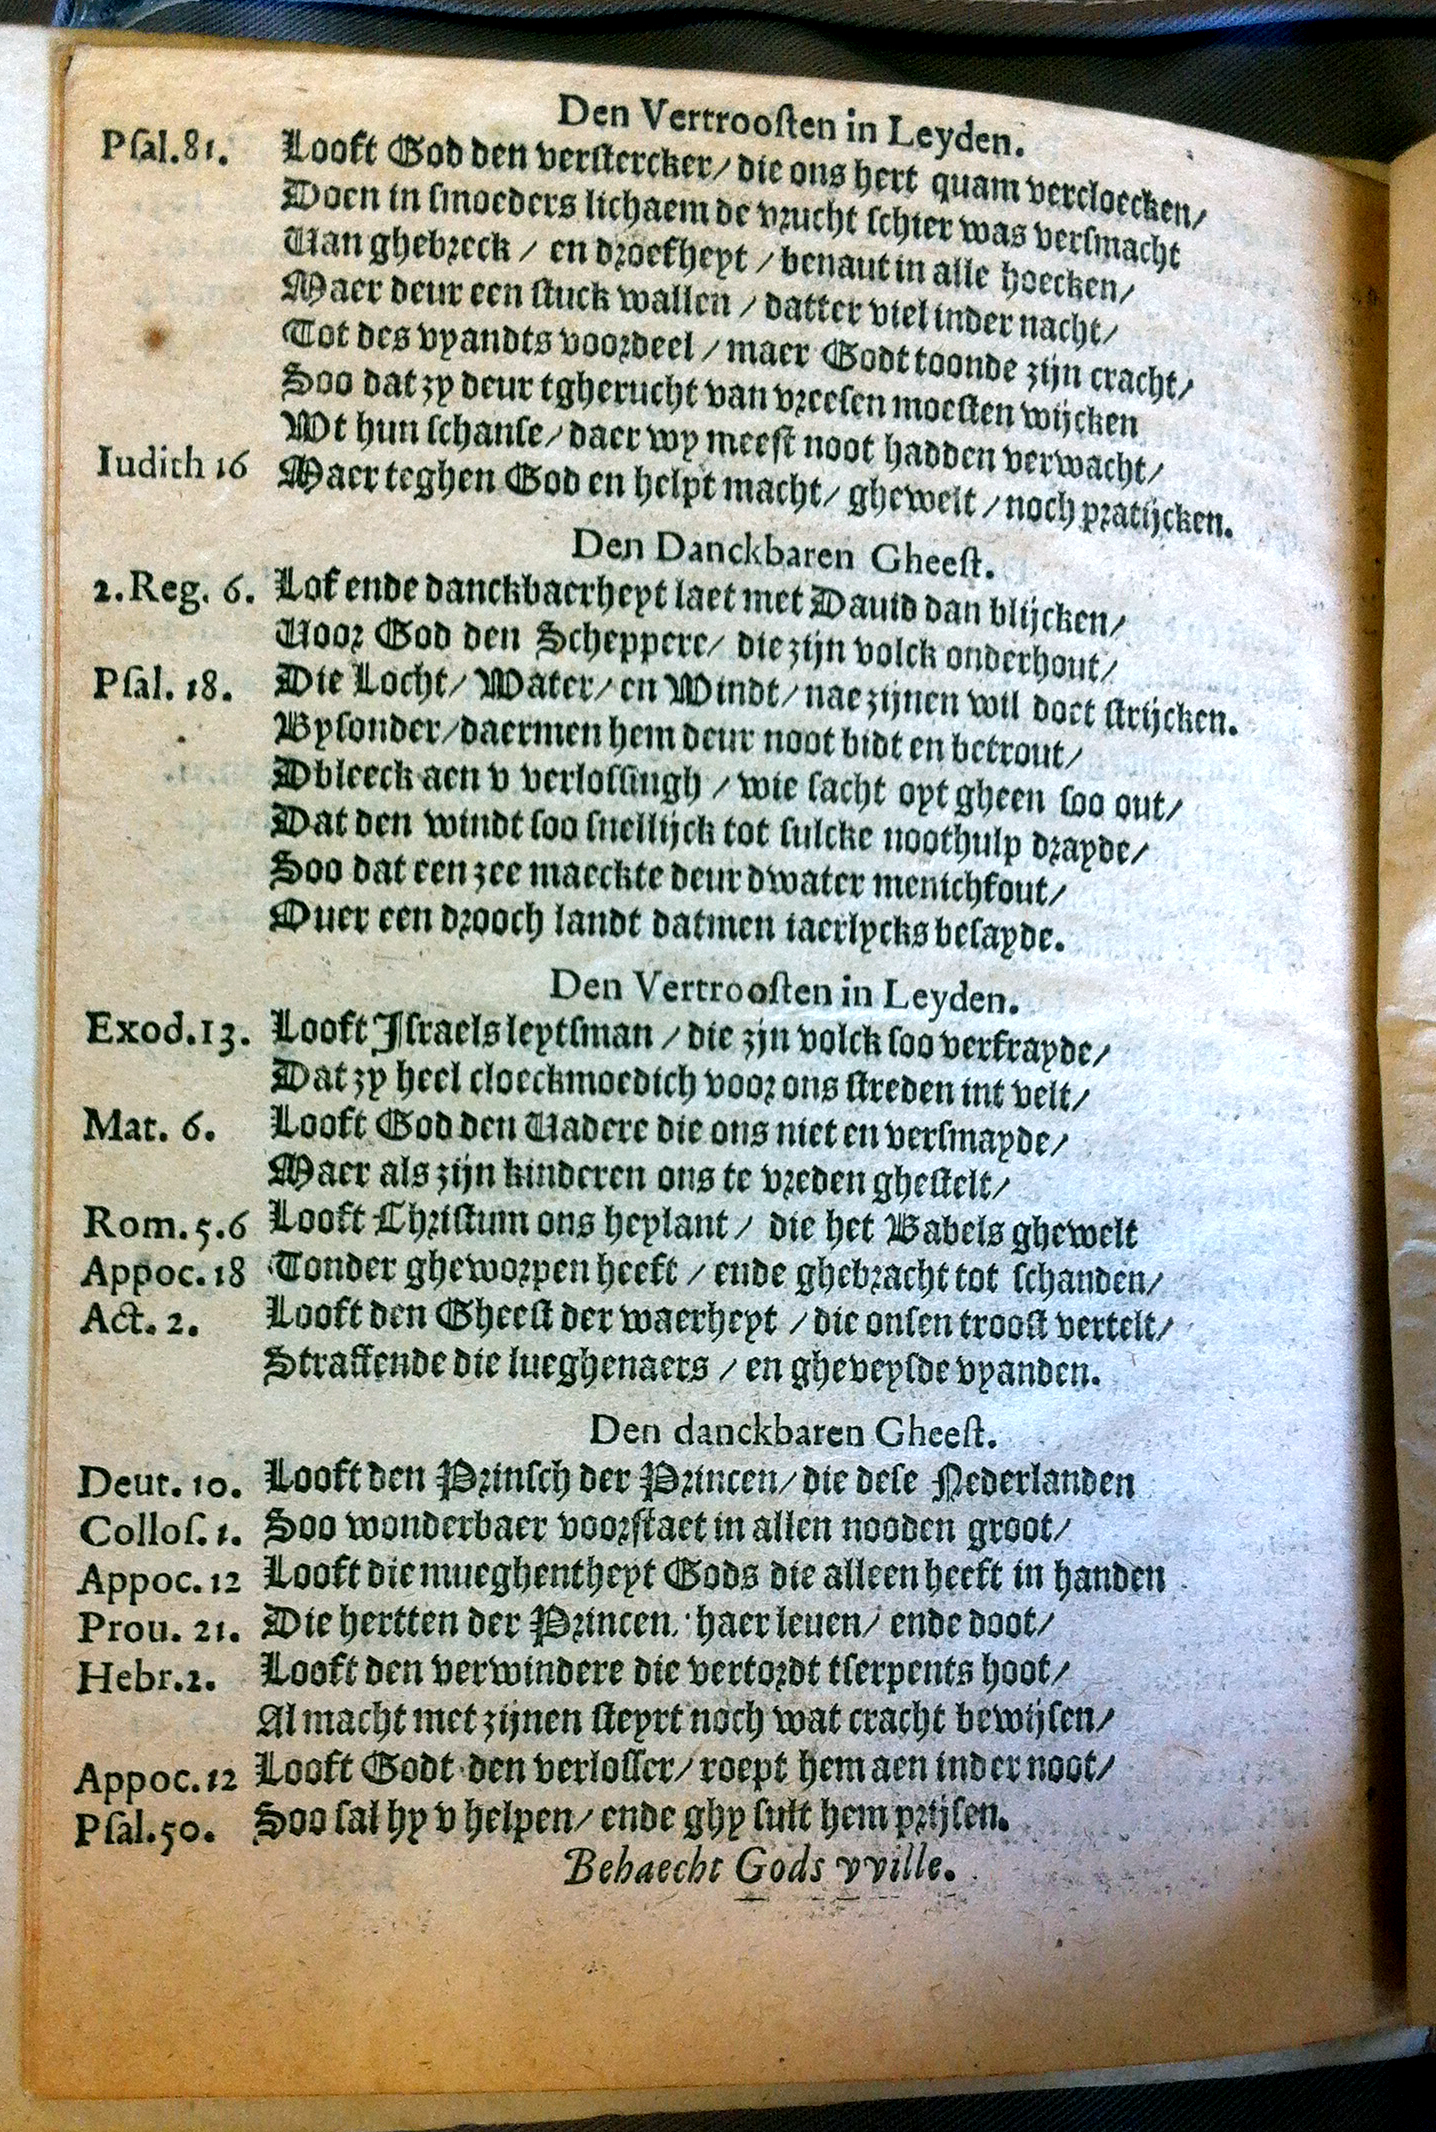 Den Vertrooſten in Leyden.
Pſal.81. Looft God den verſtercker/ die ons hert quam vercloecken/
Doen in ſmoeders lichaem de vrucht ſchier was verſmacht
Van ghebreck / en droefheyt / benaut in alle hoecken/
Maer deur een ſtuck wallen / datter viel inder nacht/
Tot des vyandts voordeel / maer Godt toonde zijn cracht/
Soo dat zy deur tgherucht van vreeſen moeſten wijcken
Wt hun ſchanſe/ daer wy meeſt noot hadden verwacht/
Iudith 16 Maer teghen God en helpt macht/ ghewelt / noch pratijcken.
Den Danckbaren Gheeſt.
2.Reg. 6. Lof ende danckbaerheyt laet met Dauid dan blijcken/
Voor God den Scheppere/ die zijn volck onderhout/
Pſal. 18. Die Locht/ Water/ en Windt/ nae zijnen wil doet ſtrijcken.
Byſonder/daermen hem deur noot bidt en betrout/
Dbleeck aen v verloſſingh / wie ſacht oyt gheen ſoo out/
Dat den windt ſoo ſnellijck tot ſulcke noothulp drayde/
Soo dat een zee maeckte deur dwater menichfout/
Ouer een drooch landt datmen iaerlycks beſayde.
Den Vertrooſten in Leyden.
Exod.13. Looft Iſraels leytſman / die zjn volck ſoo verfrayde/
Dat zy heel cloeckmoedich voor ons ſtreden int velt/
Mat. 6. Looft God den Vadere die ons niet en verſmayde/
Maer als zijn kinderen ons te vreden gheſtelt/
Rom. 5.6 Looft Chriſtum ons heylant / die het Babels ghewelt
Appoc. 18 Tonder gheworpen heeft / ende ghebracht tot ſchanden/
Act. 2. Looft den Gheeſt der waerheyt / die onſen trooſt vertelt/
Straffende die lueghenaers / en gheveyſde vyanden.
Den danckbaren Gheeſt.
Deut. 10. Looft den Prinſch der Princen/ die deſe Nederlanden
Colloſ. 1. Soo wonderbaer voorſtaet in allen nooden groot/
Appoc. 12 Looft die mueghentheyt Gods die alleen heeft in handen
Prou. 21. Die hertten der Princen, haer leuen/ ende doot/
Hebr.2. Looft den verwindere die vertordt tſerpents hoot/
Al macht met zijnen ſteyrt noch wat cracht bewijſen/
Appoc.12 Looft Godt den verloſſer/ roept hem aen inder noot/
Pſal.50. Soo ſal hy v helpen/ ende ghy ſult hem prijſen.
Behaecht Gods vville.